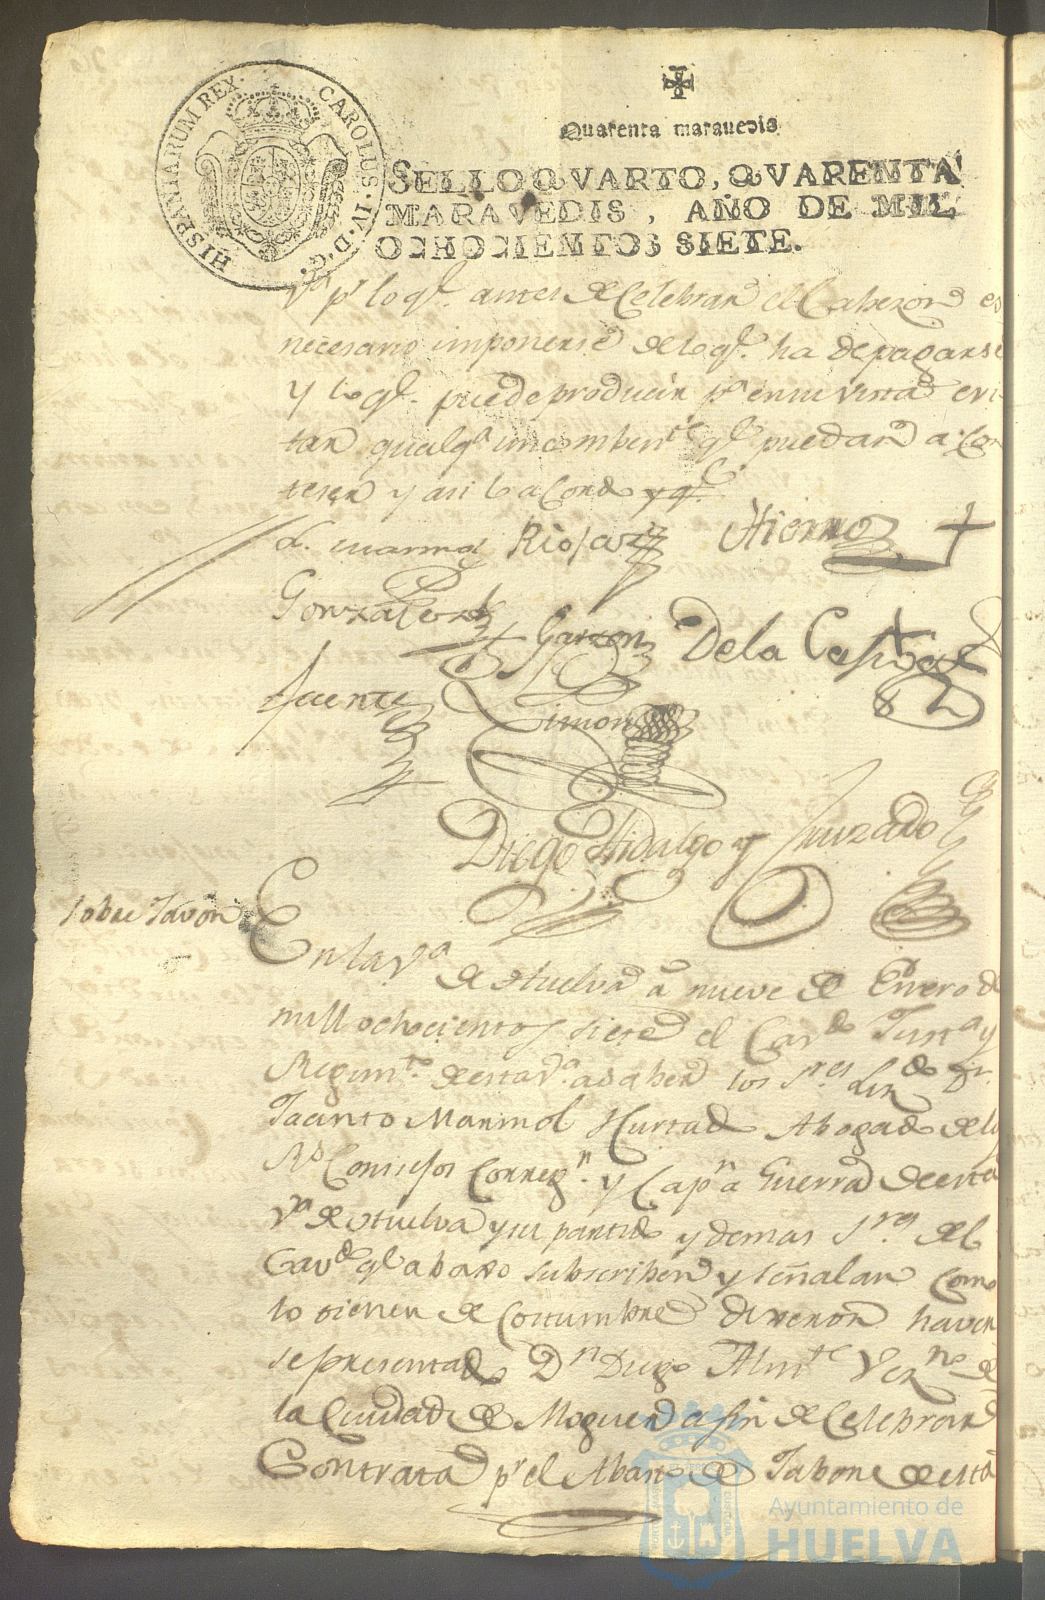 HISPANIARUM REX. CAROLUS. IV. D. G.
Quarenta maravedis
SELLO QVARTO, QVARENTA
MARAVEDIS, AÑO DE MIL
OCHOCIENTOS SIETE.
Vª pr lo ql. antes de Celebrar el Cabezon es
necesario imponerse de lo ql. ha de pagarse
y lo ql. puede producir pª en su vista evi-
tar qualqª ql puedan acon-
tesen y asi lo acordo
L. Marmol Riojano Hierro
Gonzales Garzon De la
fuente Limon
Diego Hidalgo y Cruzado
sobre Javon
En la Vª de Huelva a nueve de Enero de
mill ochocientos siete el Cavdo Justª y
Regimto. de esta Vª a saber los Sres Lizdo Dn.
Jacinto Marmol Hurtado Abogado de los
Rs Consejos Corregn. y Capn a Guerra de esta
Vª de Huelva y su partido y demas Sres del
Cavdo ql abaxo subscriben y señalan como
lo tienen de costumbre dixeron haver
se presentado Dn Diego Almte Vezno de
la Ciudad de Moguer a fin de Celebrar
Contrata pr el Abasto de Jabon de esta
Ayuntamiento de
HUELVA